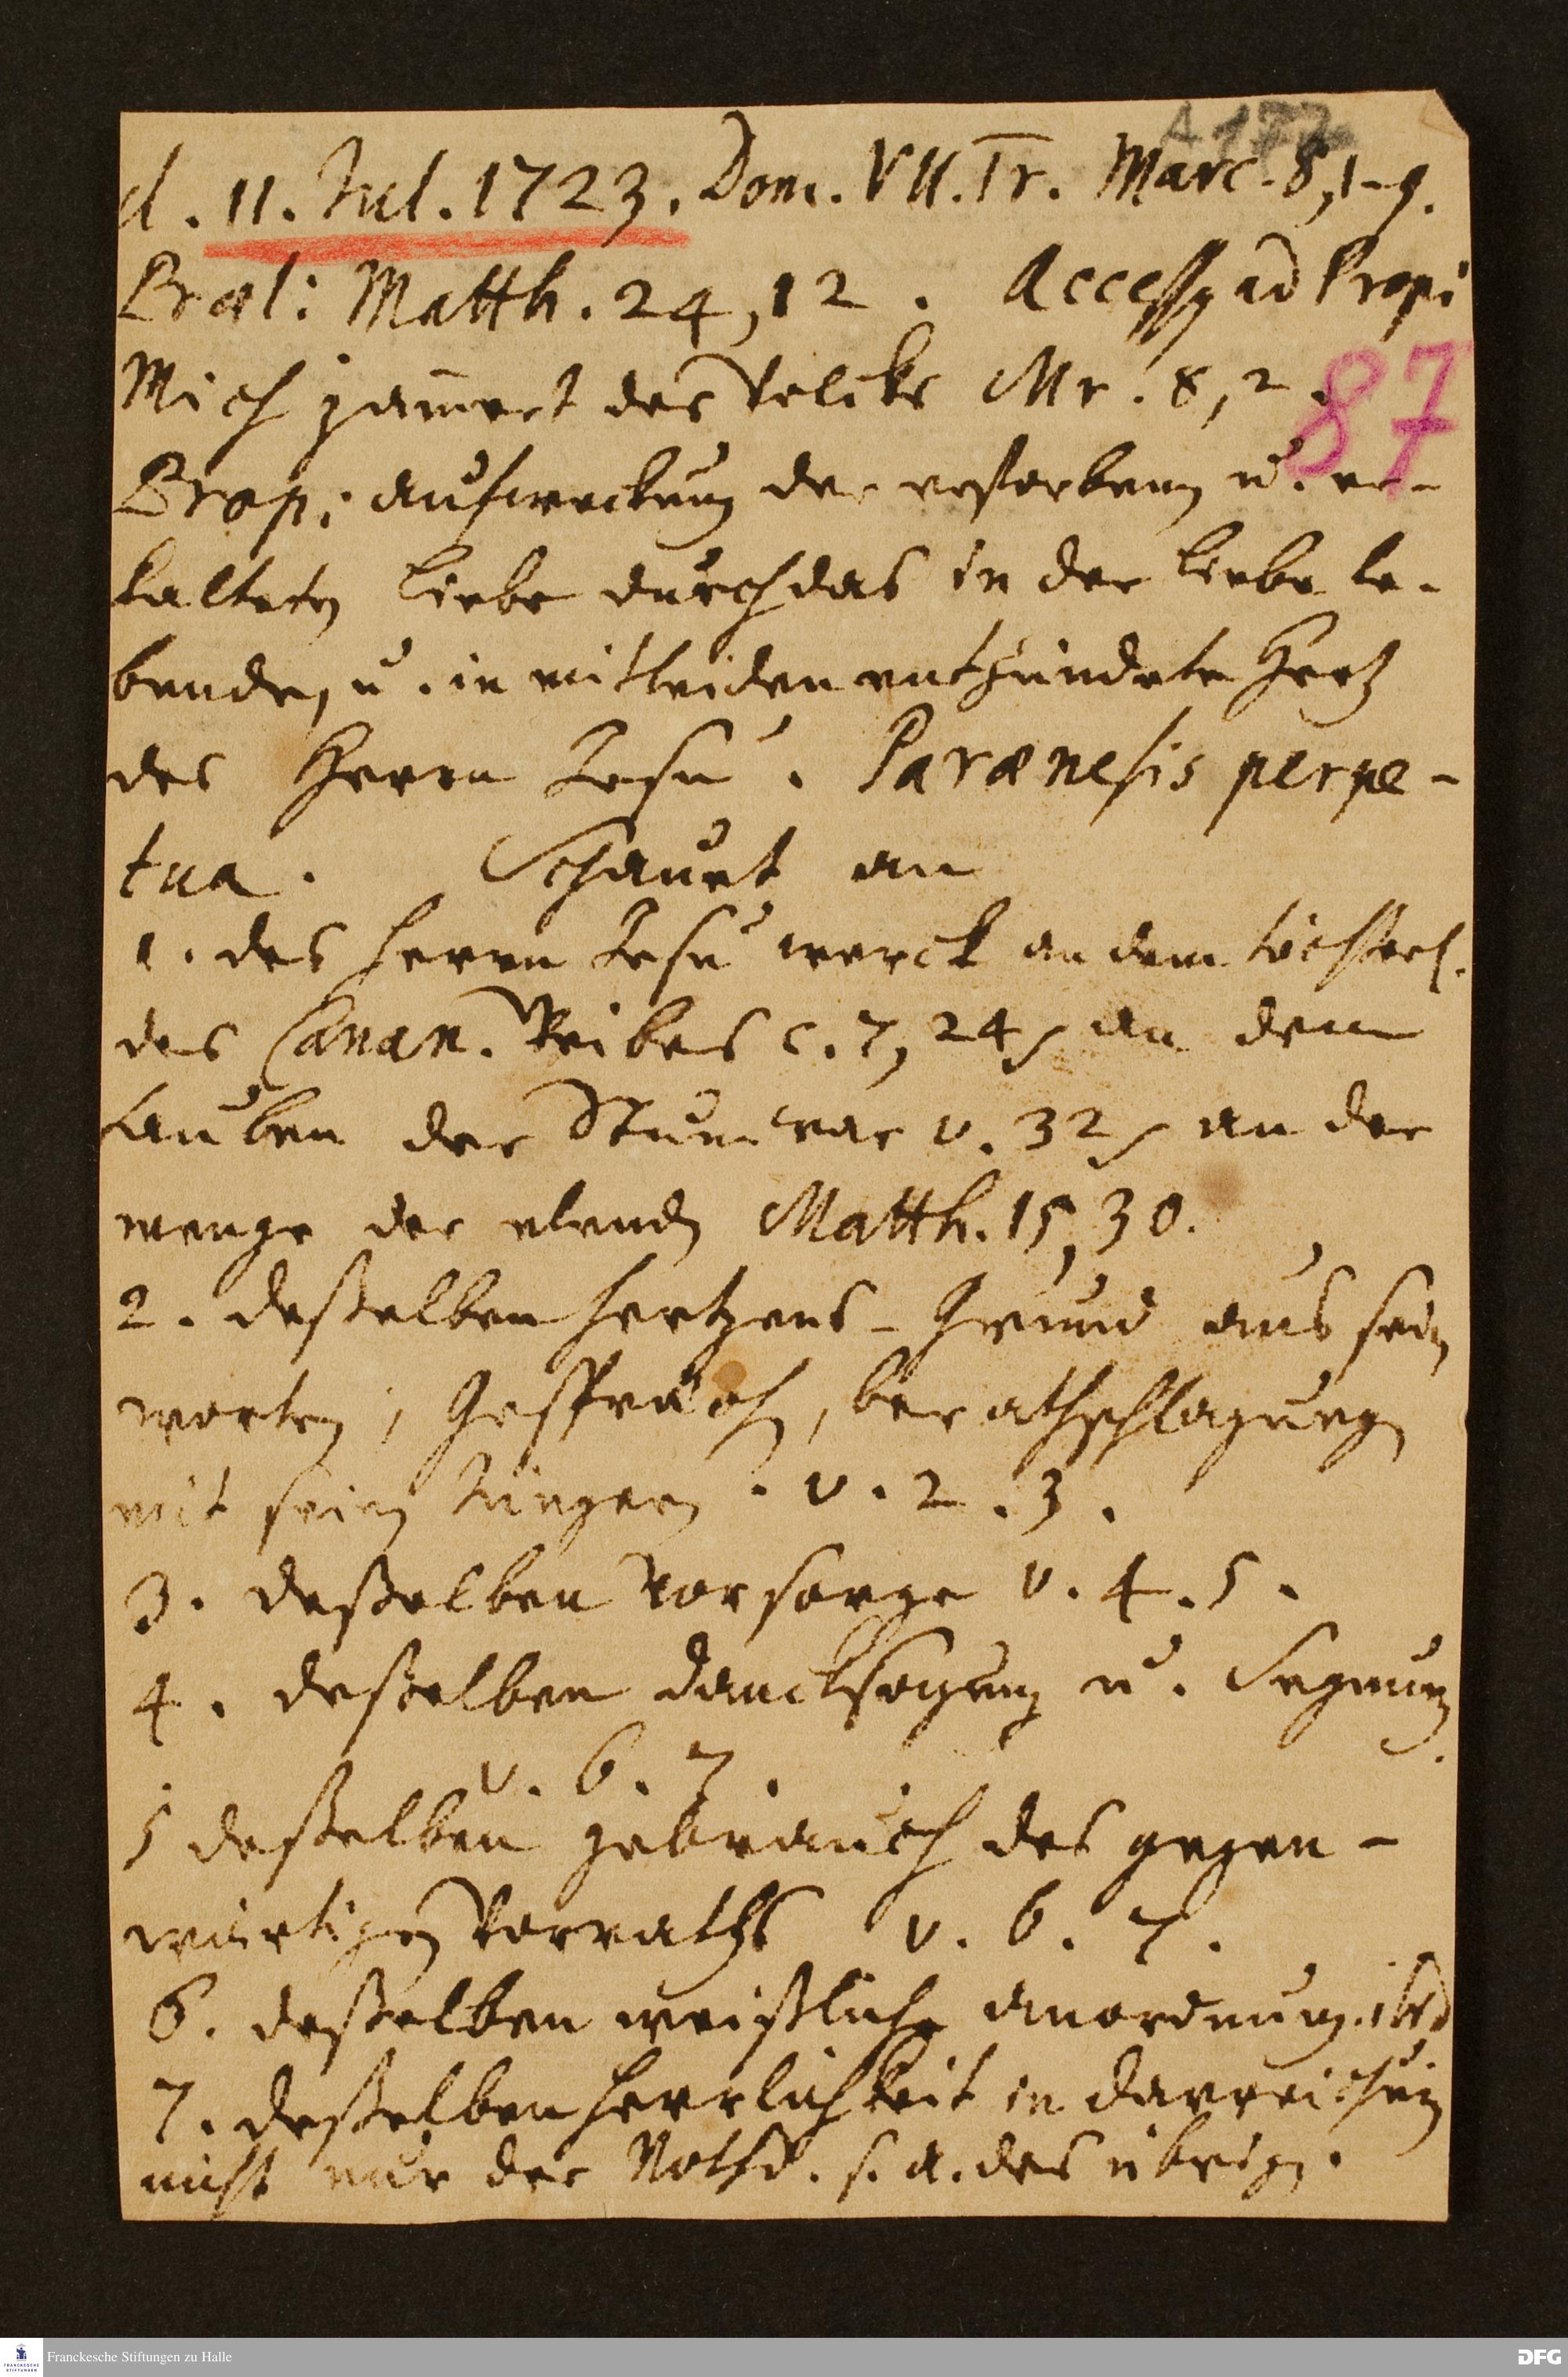 A 177
d. 11. Jul. 1723. Dom. VII. Tr. Marc. 8, 1-9.
Præl: Matth. 24, 12. Accessq ad Propi
87
Mich jam̅ert des Volcks Mr. 8, 2.
Prop: aufweckung der erstorbenen u. er-
kalteten liebe durch das in der liebe le-
bende, u. in mitleiden entzündete Hertz
des Herrn Jesu. Parænesis perpe-
tua. Schauet an
1. des Herrn Jesu werck an dem töchterl.
des Canan. Weibes c. 7, 24 an dem
tauben der Stum̅ war v. 32 an der
menge der elenden Matth. 15, 30.
2. desselben hertzens-Grund aus sein
worten, Gespräch, berathschlagung
mit seinen Jüngern. v. 2. 3.
3. desselben Vorsorge v. 4. 5.
4. desselben dancksagung u. Segnung
v. 6. 7.
5 desselben gebrauch des gegen-
wärtigen Vorraths v. 6. 7.
6. desselben weißliche anordnung. ibid
7. desselben herrlichkeit in darreichung
nicht nur der Nothd. s. a. des übrigen.
Franckesche Stiftungen zu Halle
FRANCKESCHE STIFTUNGEN
DFG